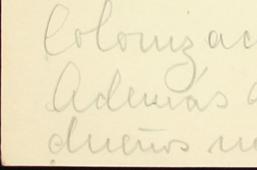 Colonizac
Además
dueños